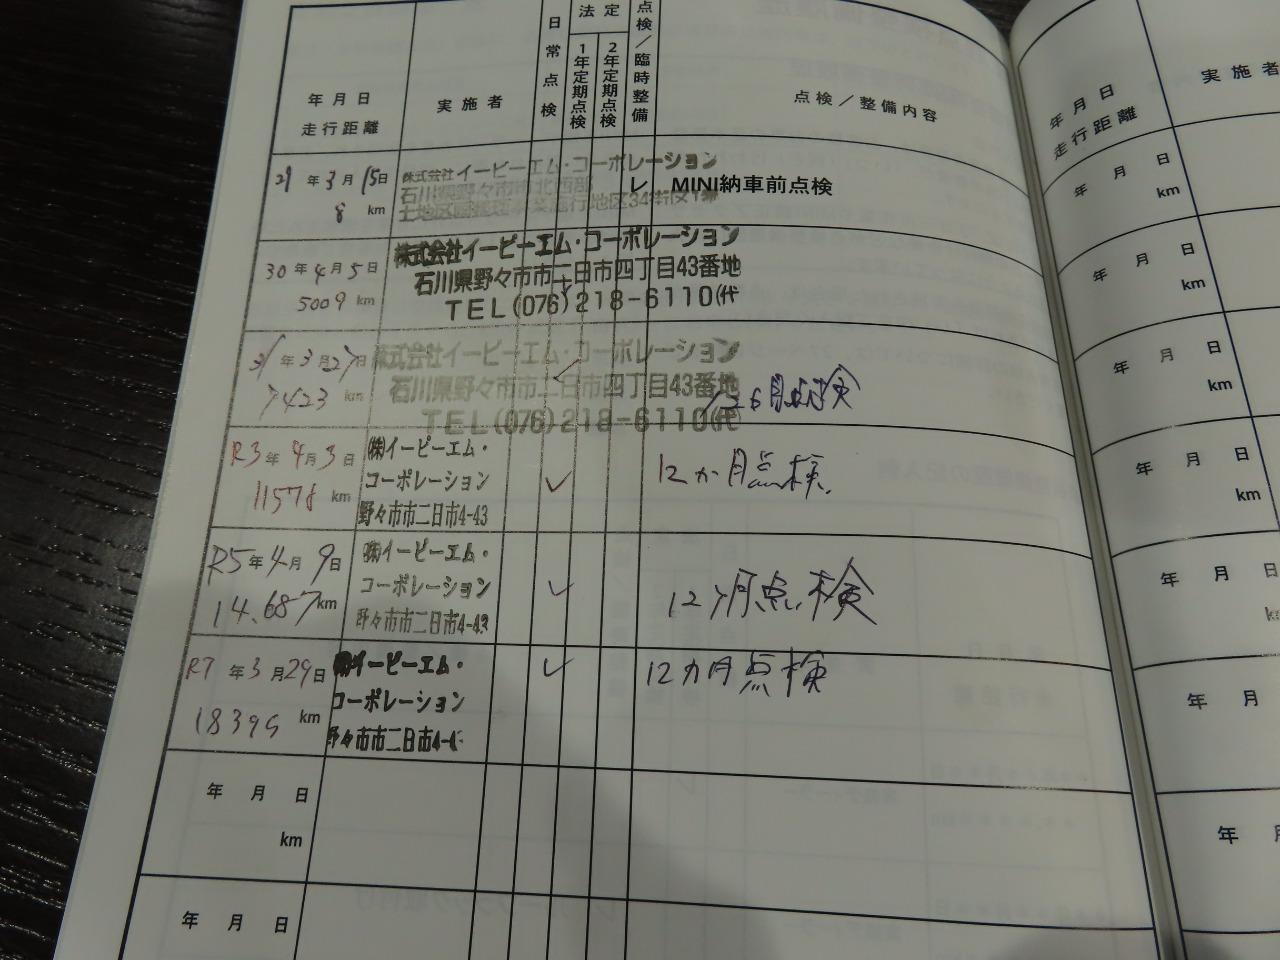 年月日
走行距離
実施者
日常点検
法定
1年定期点検
2年定期点検
点検／臨時整備
点検／整備内容
29年3月15日
8 km
株式会社イーピーエム・コーポレーション
石川県野々市市北西部
土地区画整理事業施行地区34街区1番
レ
MINI納車前点検
30年4月5日
5009 km
株式会社イーピーエム・コーポレーション
石川県野々市市二日市四丁目43番地
TEL(076)218-6110(代
31年3月27日
7423 km
株式会社イーピーエム・コーポレーション
石川県野々市市二日市四丁目43番地
TEL(076)218-6110(代
12ヶ月点検
R3年4月3日
11578 km
㈱イーピーエム・
コーポレーション
野々市市二日市4-43
12か月点検
R5年4月9日
14.687km
㈱イーピーエム・
コーポレーション
野々市市二日市4-43
12ヶ月点検
R7年3月29日
18395 km
㈱イーピーエム・
コーポレーション
野々市市二日市4-4
12カ月点検
年月日
km
年月日
年月日
走行距離
実施者
年月日
km
年月日
km
年月日
km
年月日
km
年月日
年月
年月